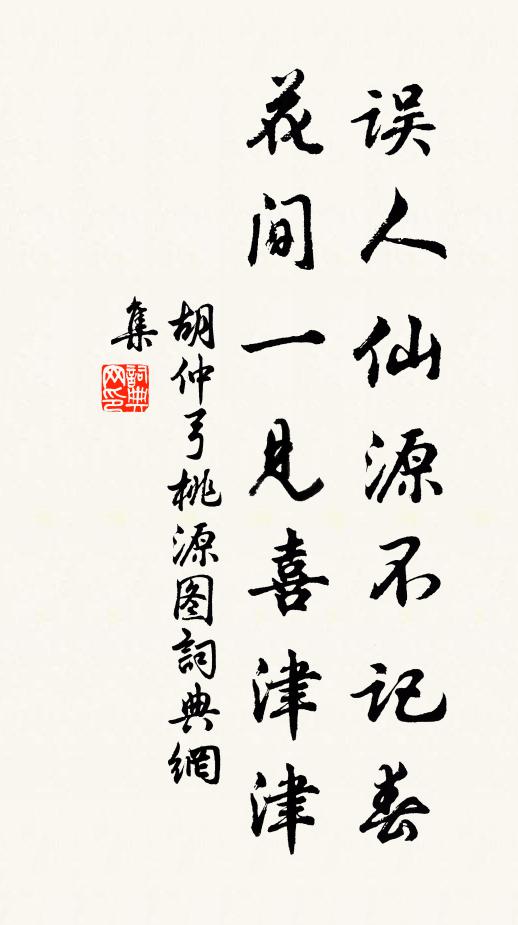 误人仙源不记春
花间一见喜津津
胡仲弓桃源图詞典網
集
詞典
网印